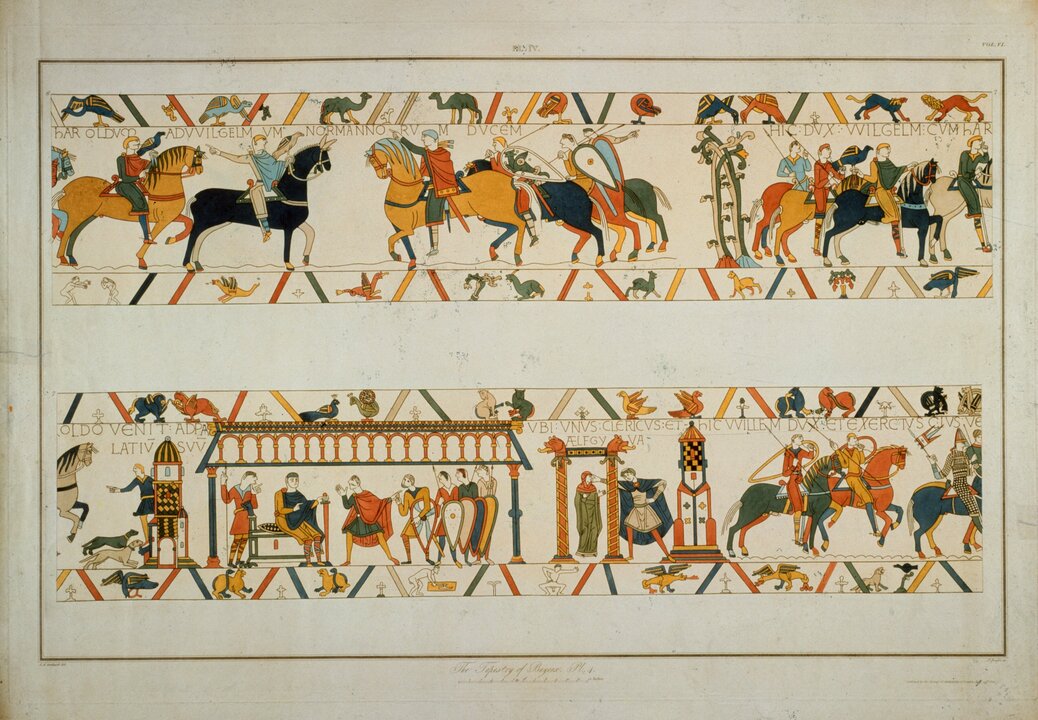 Pl. IV.
VOL. VI.
HAROLDVM AD VVILGELMVM NORMANNORVM DVCEM
HIC DVX VVILGELM: CVM HAR
OLDO VENIT: AD PA
LATIV SVV
VBI: VNVS: CLERICVS: ET
ÆLFGYVA
HIC WILLEM DVX: ET EXERCITVS EIVS: VE
The Tapestry of Bayeux. Pl. 4.